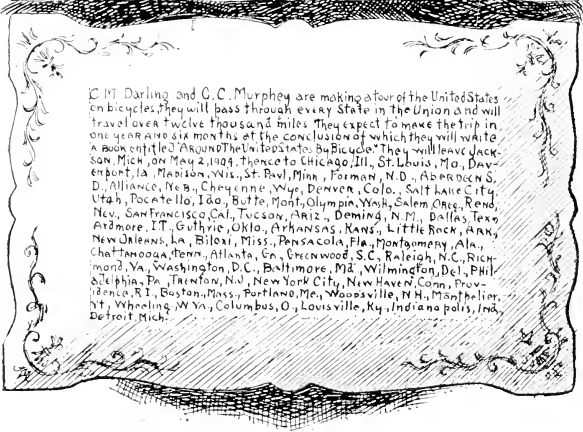 C M Darling and C. C. Murphey are making a tour of the United States
on bicycles, they will pass through every State in the Union and will
travel over twelve thousand miles They expect to make the trip in
one year and six months at the conclusion of which they will write
a book entitled "Around The United States By Bicycle." They will leave Jack-
son, Mich, on May 2, 1904. thence to Chicago, Ill., St. Louis, Mo., Dav-
enport, Ia, Madison, Wis., St. Paul, Minn, Forman, N.D., Aberdeen S.
D., Alliance, Neb., Cheyenne, Wyo, Denver, Colo., Salt Lake City
Utah, Pocatello, Ido., Butte, Mont, Olympia, Wash, Salem, Oreg., Reno,
Nev., San Francisco, Cal., Tucson, Ariz., Deming, N.M., Dallas, Tex,
Ardmore, I.T., Guthrie, Oklo., Arkansas, Kans., Little Rock, Ark.,
New Orleans, La, Biloxi, Miss., Pensacola, Fla., Montgomery, Ala.,
Chattanooga, Tenn., Atlanta, Ga., Greenwood, S.C., Raleigh, N.C., Rich-
mond, Va., Washington, D.C., Baltimore, Md, Wilmington, Del., Phil-
adelphia, Pa, Trenton, N.J, New York City, New Haven, Conn, Prov-
idence, R.I., Boston, Mass., Portland, Me., Woodsville, N.H., Monthelier,
Vt, Wheeling, W Va., Columbus, O., Louisville, Ky., Indianapolis, Ind,
Detroit, Mich.